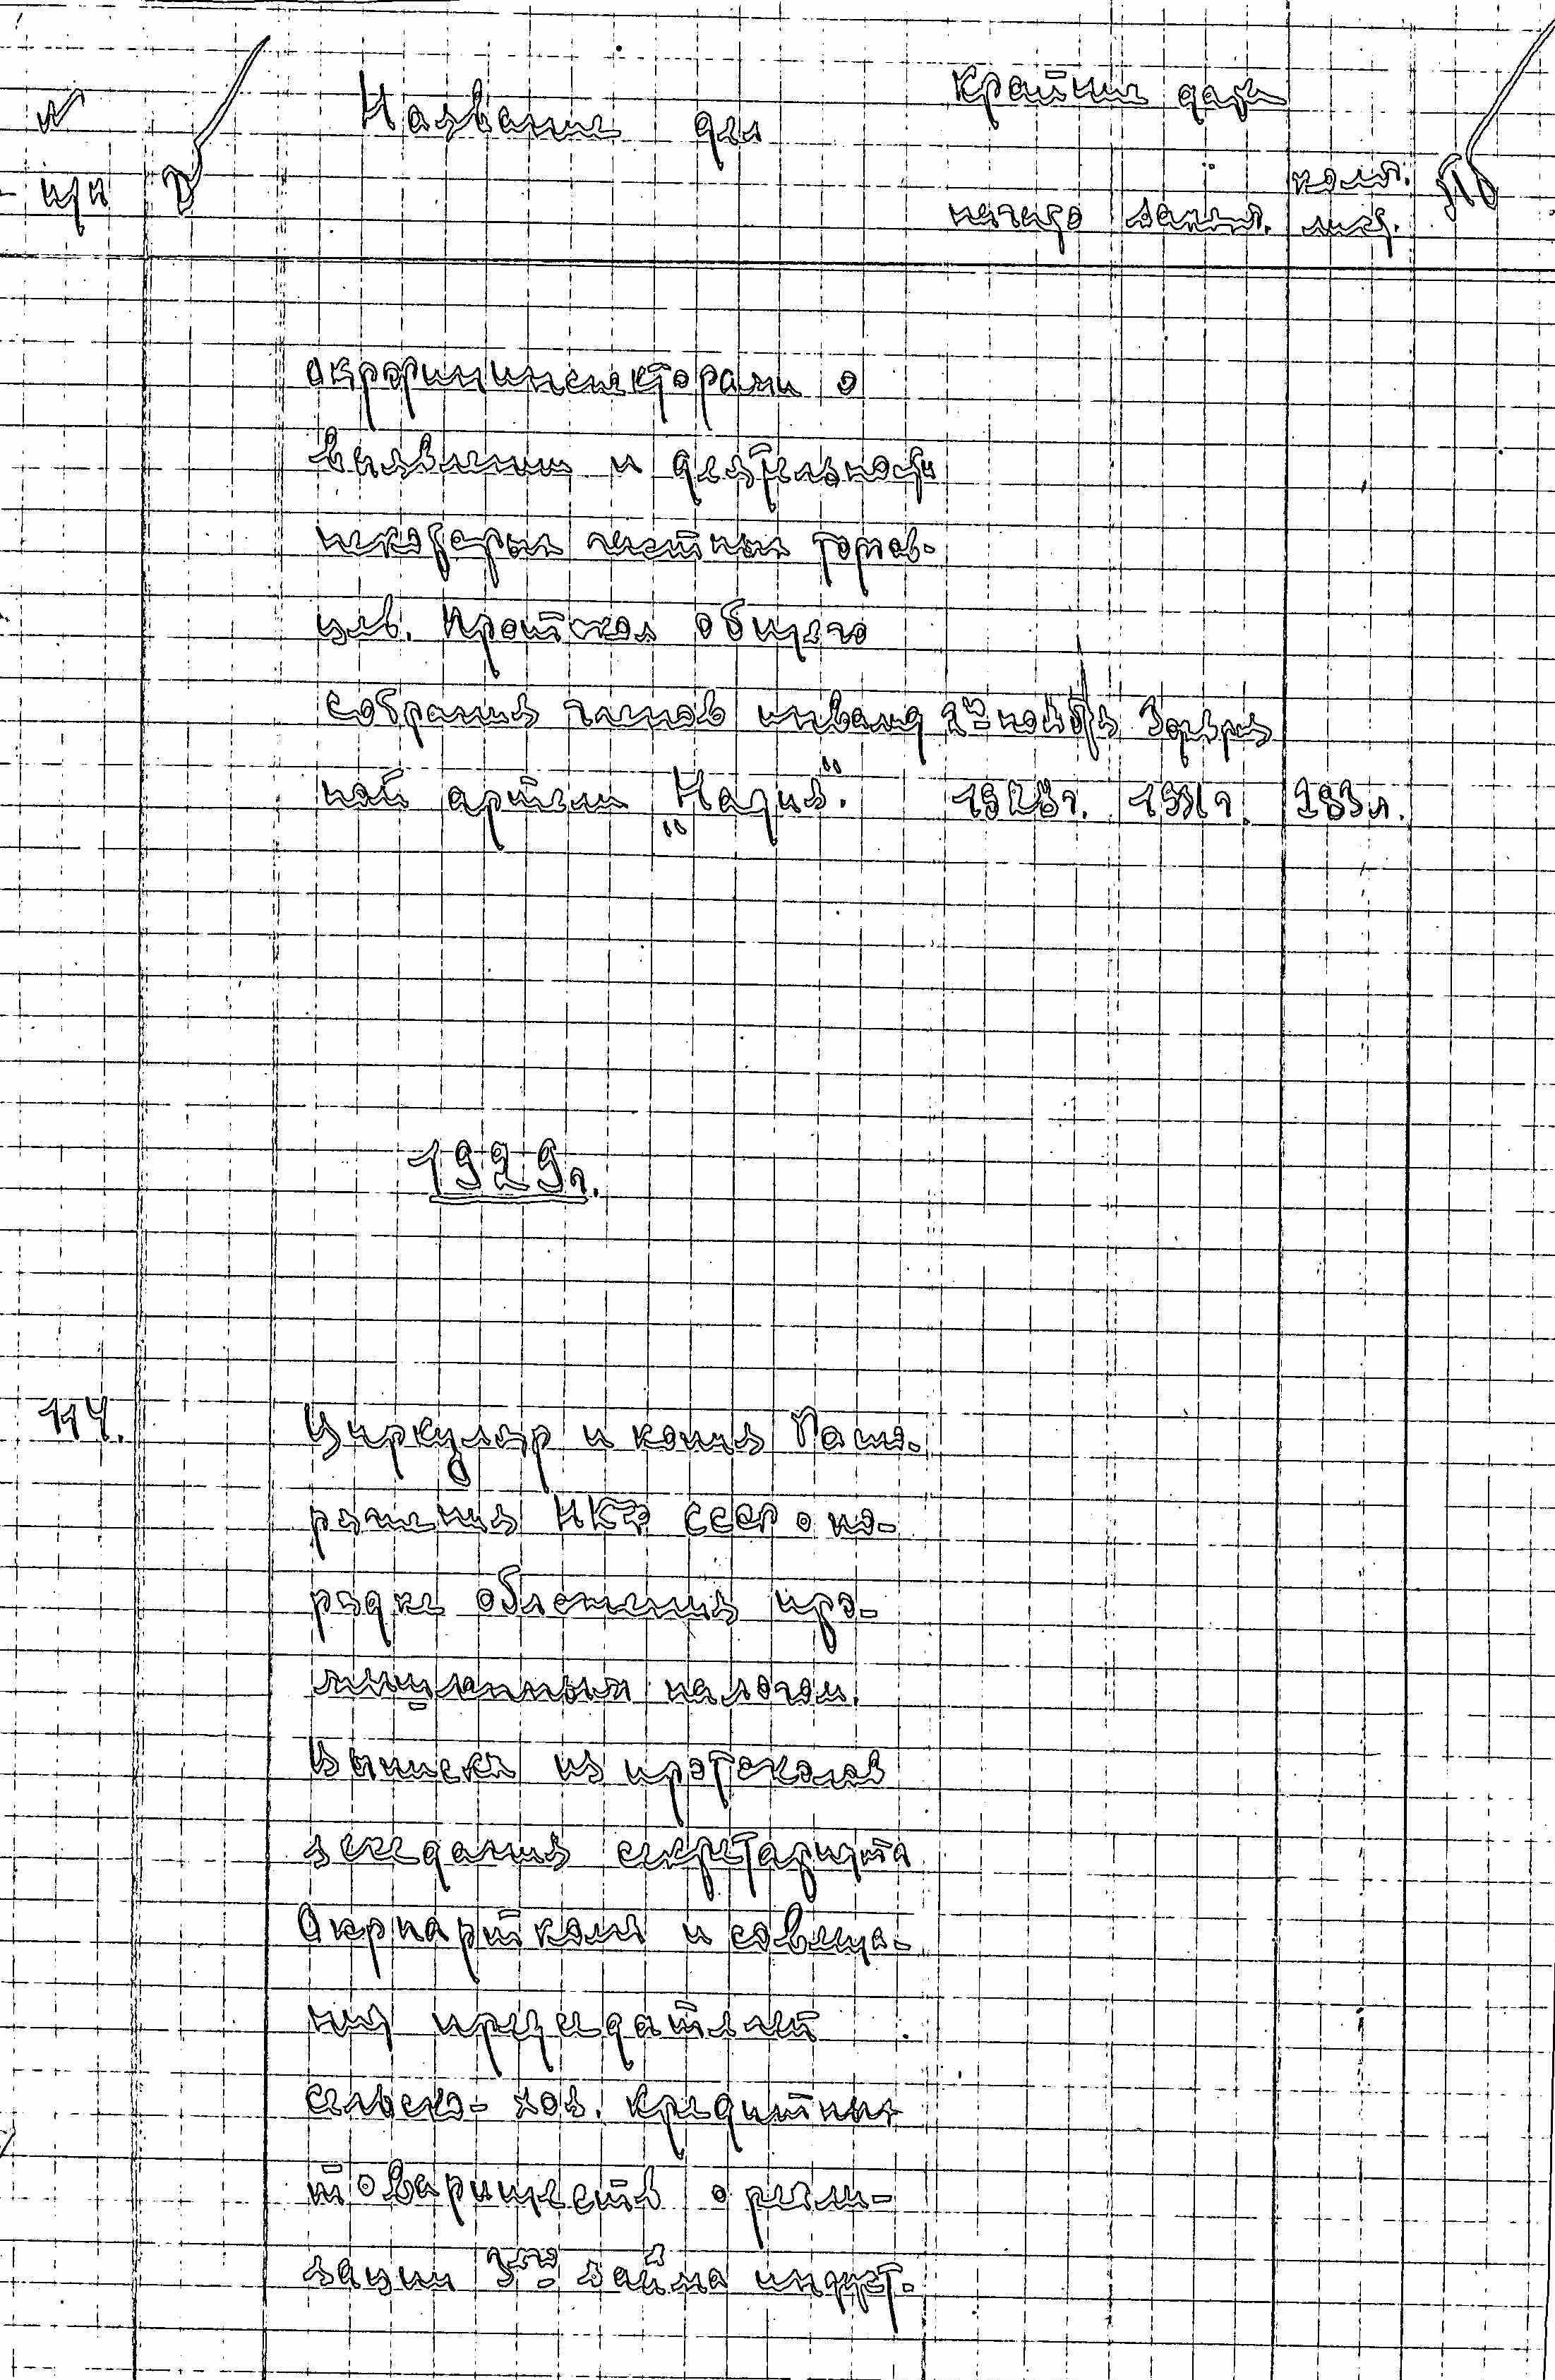 № Название дел крайние даты
п/п начало заключ. колич. лист.
окрфининспекторами о
выявлении и деятельности
некоторых частных торгов-
цев. Протокол общего
собрания членов инвалид 2го ноября 3 февраля
ной артели "Надия". 1928г. 1931г. 283л.
1929г.
114. Циркуляр и копия
НКФ СССР о по-
рядке обложения про-
мышленным налогом.
Выписки из протоколов
заседания секретариата
Окрпарткома и совеща-
ния председателей
сельско-хоз. кредитных
товариществ о реали-
зации 3го займа индуст-